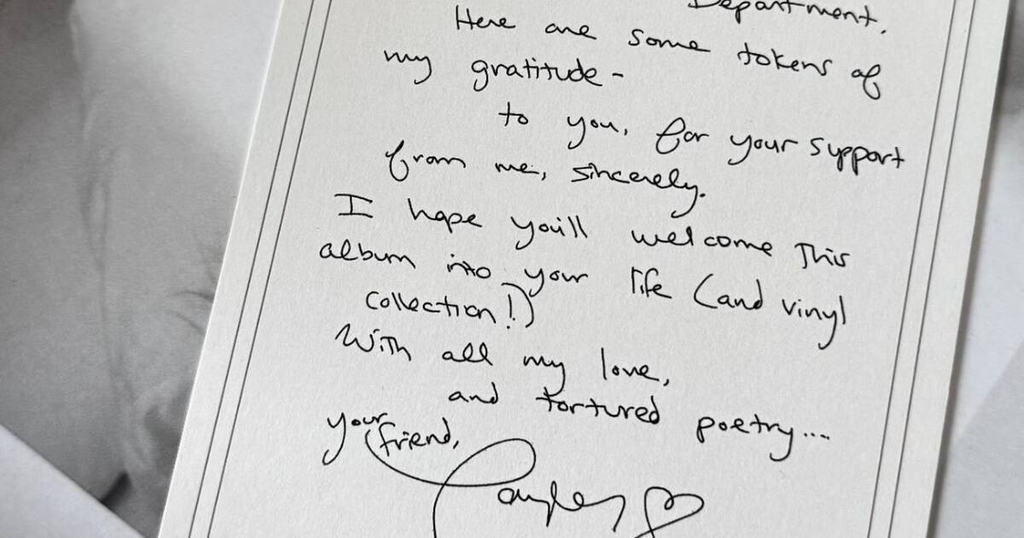 Department.
Here are some tokens of
my gratitude -
to you, for your support
from me, sincerely.
I hope you'll welcome This
album into your life (and vinyl
collection!)
With all my love,
and tortured poetry...
your friend,
Taylor